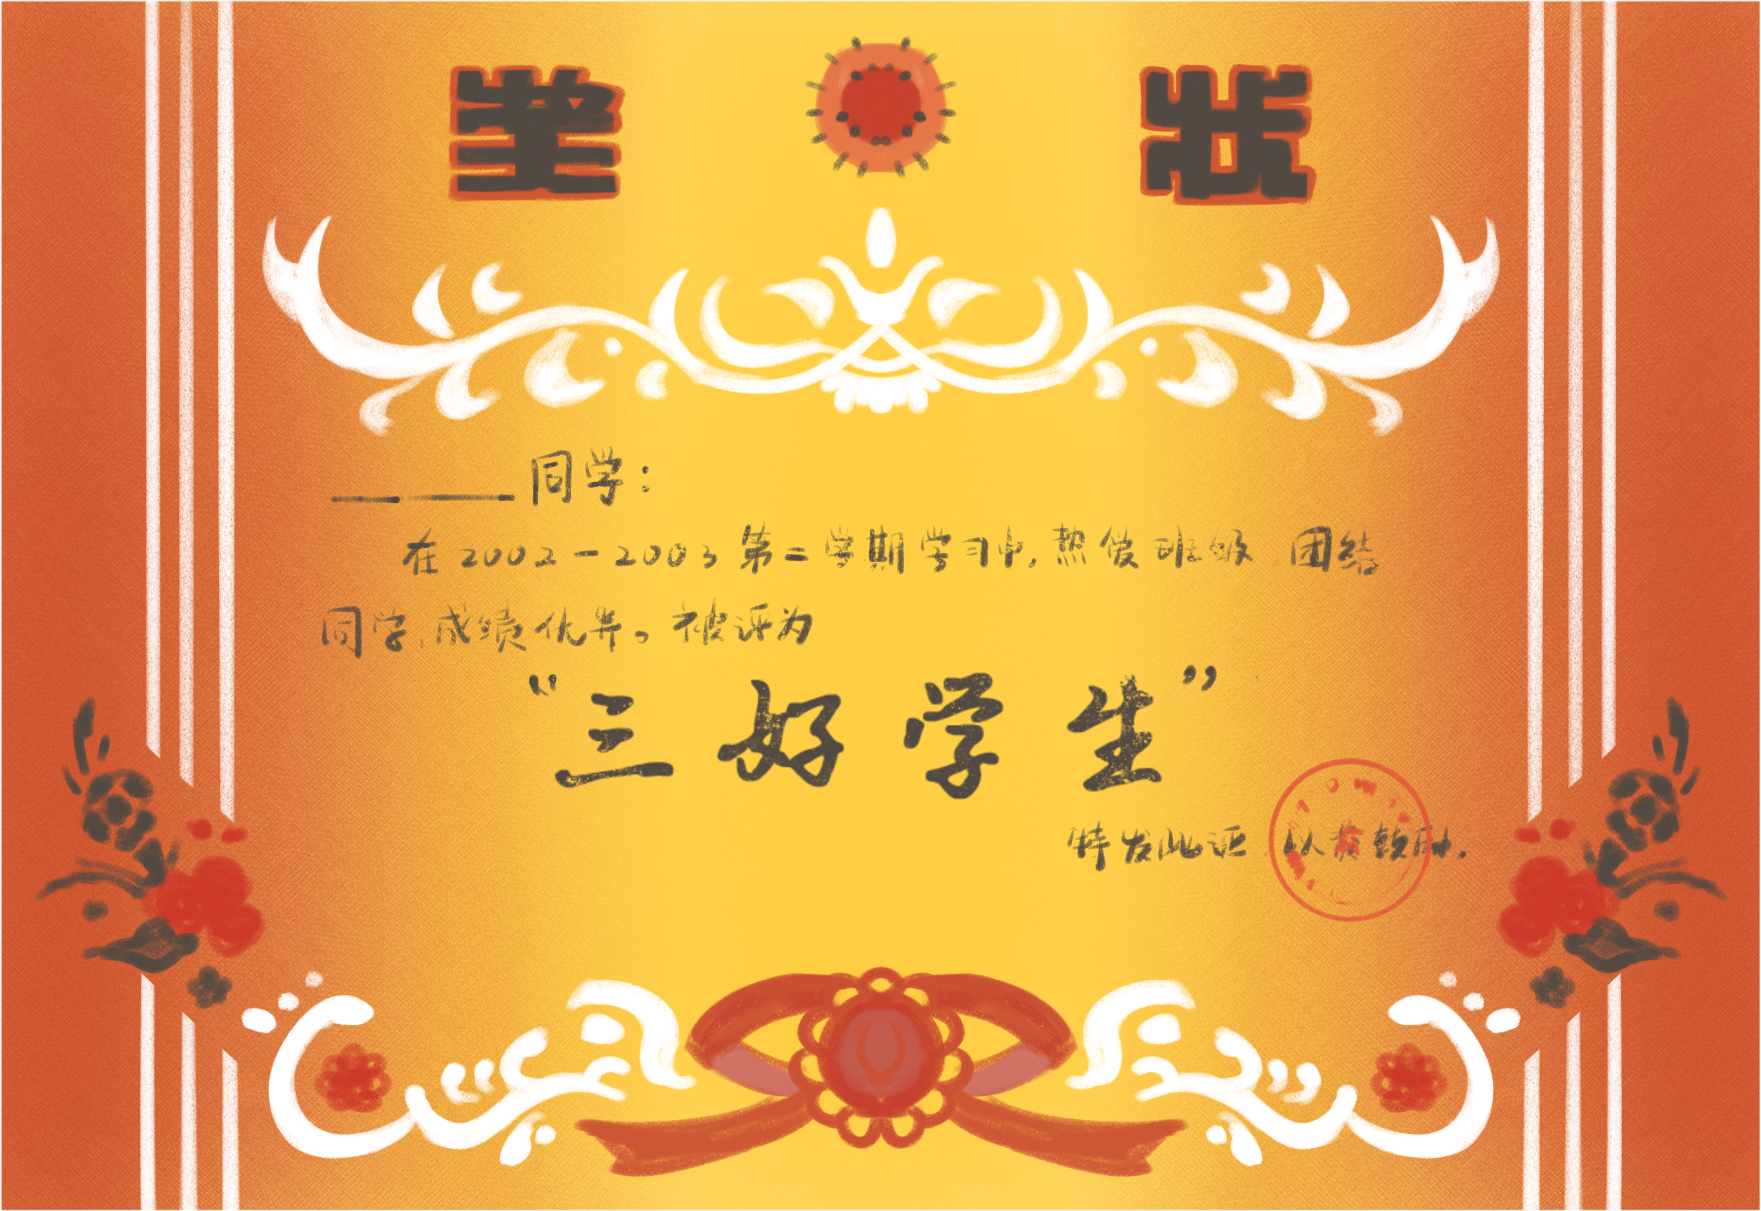 奖状
同学：
在2002-2003第二学期学习中,热爱班级.团结
同学,成绩优异。被评为
“三好学生”
特发此证.以资鼓励.